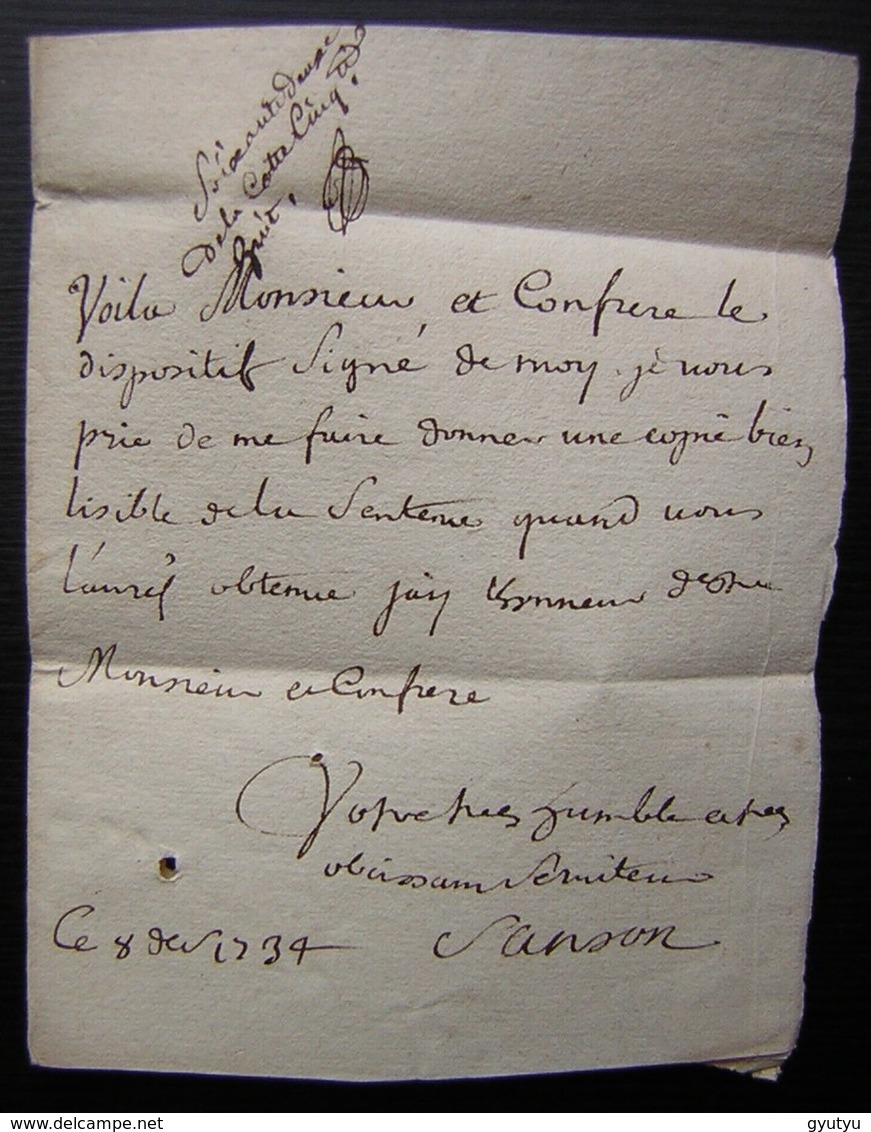 Soixante deuxe
de la Cotte Cinq
huit.
Voila Monsieur et Confrere le
dispositif Signé de moy. je vous
prie de me faire donner une copie bien
lisible de la Sentence quand vous
l'aurés obtenue j'ay lhonneur destre
Monsieur et Confrere
Votre tres humble et tres
obeissant Serviteur
Ce 8 des 1734 Sanson
delcampe.net
gyutyu